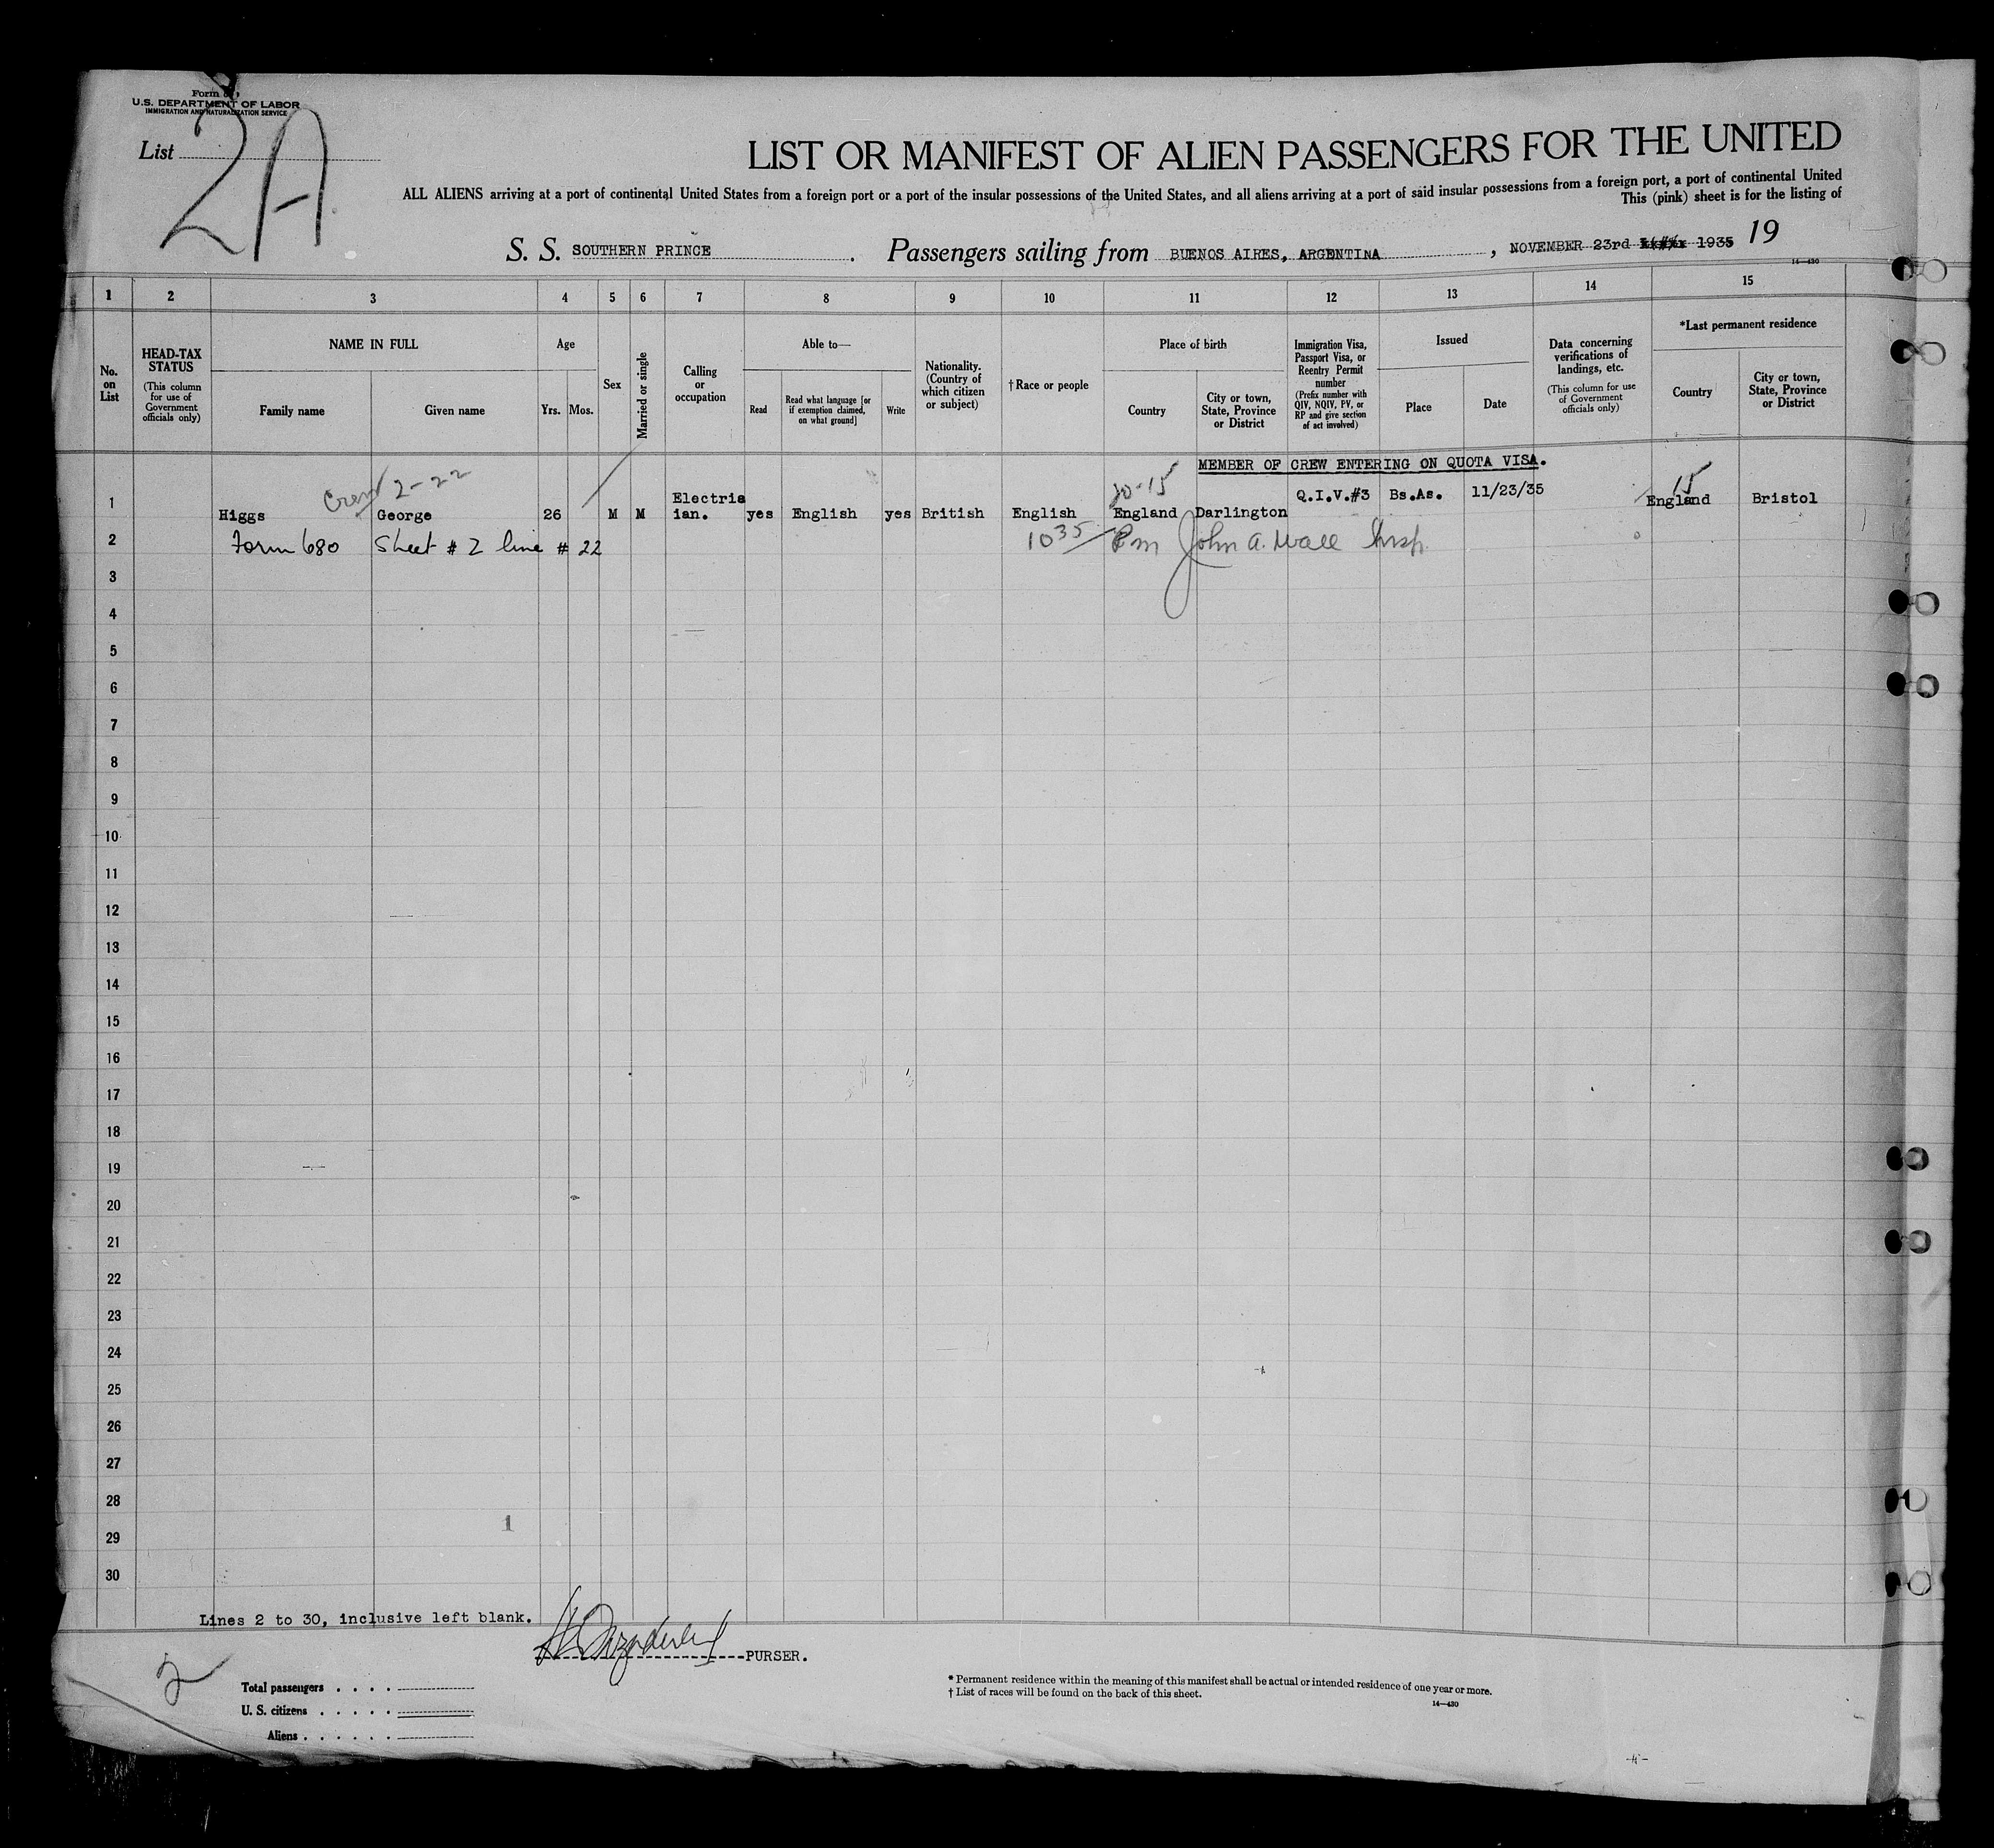 Form
U.S. DEPARTMENT OF LABOR
IMMIGRATION AND NATURALIZATION SERVICE
List 2A
LIST OR MANIFEST OF ALIEN PASSENGERS FOR THE UNITED
ALL ALIENS arriving at a port of continental United States from a foreign port or a port of the insular possessions of the United States, and all aliens arriving at a port of said insular possessions from a foreign port, a port of continental United
This (pink) sheet is for the listing of
S. S. SOUTHERN PRINCE. Passengers sailing from BUENOS AIRES, ARGENTINA, NOVEMBER 23rd 1935 19
14—430
1 2 3 4 5 6 7 8 9 10 11 12 13 14 15
No. on List
HEAD-TAX STATUS
(This column for use of Government officials only)
NAME IN FULL
Family name
Given name
Age
Yrs. Mos.
Sex
Married or single
Calling or occupation
Able to—
Read
Read what language [or if exemption claimed, on what ground]
Write
Nationality. (Country of which citizen or subject)
†Race or people
Place of birth
Country
City or town, State, Province or District
Immigration Visa, Passport Visa, or Reentry Permit number
(Prefix number with QIV, NQIV, PV, or RP and give section of act involved)
Issued
Place
Date
Data concerning verifications of landings, etc.
(This column for use of Government officials only)
*Last permanent residence
Country
City or town, State, Province or District
MEMBER OF CREW ENTERING ON QUOTA VISA.
Crew 2-22
10-15
15
1 Higgs George 26 M M Electric ian. yes English yes British English England Darlington Q.I.V.#3 Bs.As. 11/23/35 England Bristol
2 Form 680 Sheet # 2 line # 22 10 35 Pm John A. Wall Insp.
3
4
5
6
7
8
9
10
11
12
13
14
15
16
17
18
19
20
21
22
23
24
25
26
27
28
1
29
30
Lines 2 to 30, inclusive left blank.
PURSER.
2
Total passengers
U. S. citizens
Aliens
* Permanent residence within the meaning of this manifest shall be actual or intended residence of one year or more.
† List of races will be found on the back of this sheet.
14—430